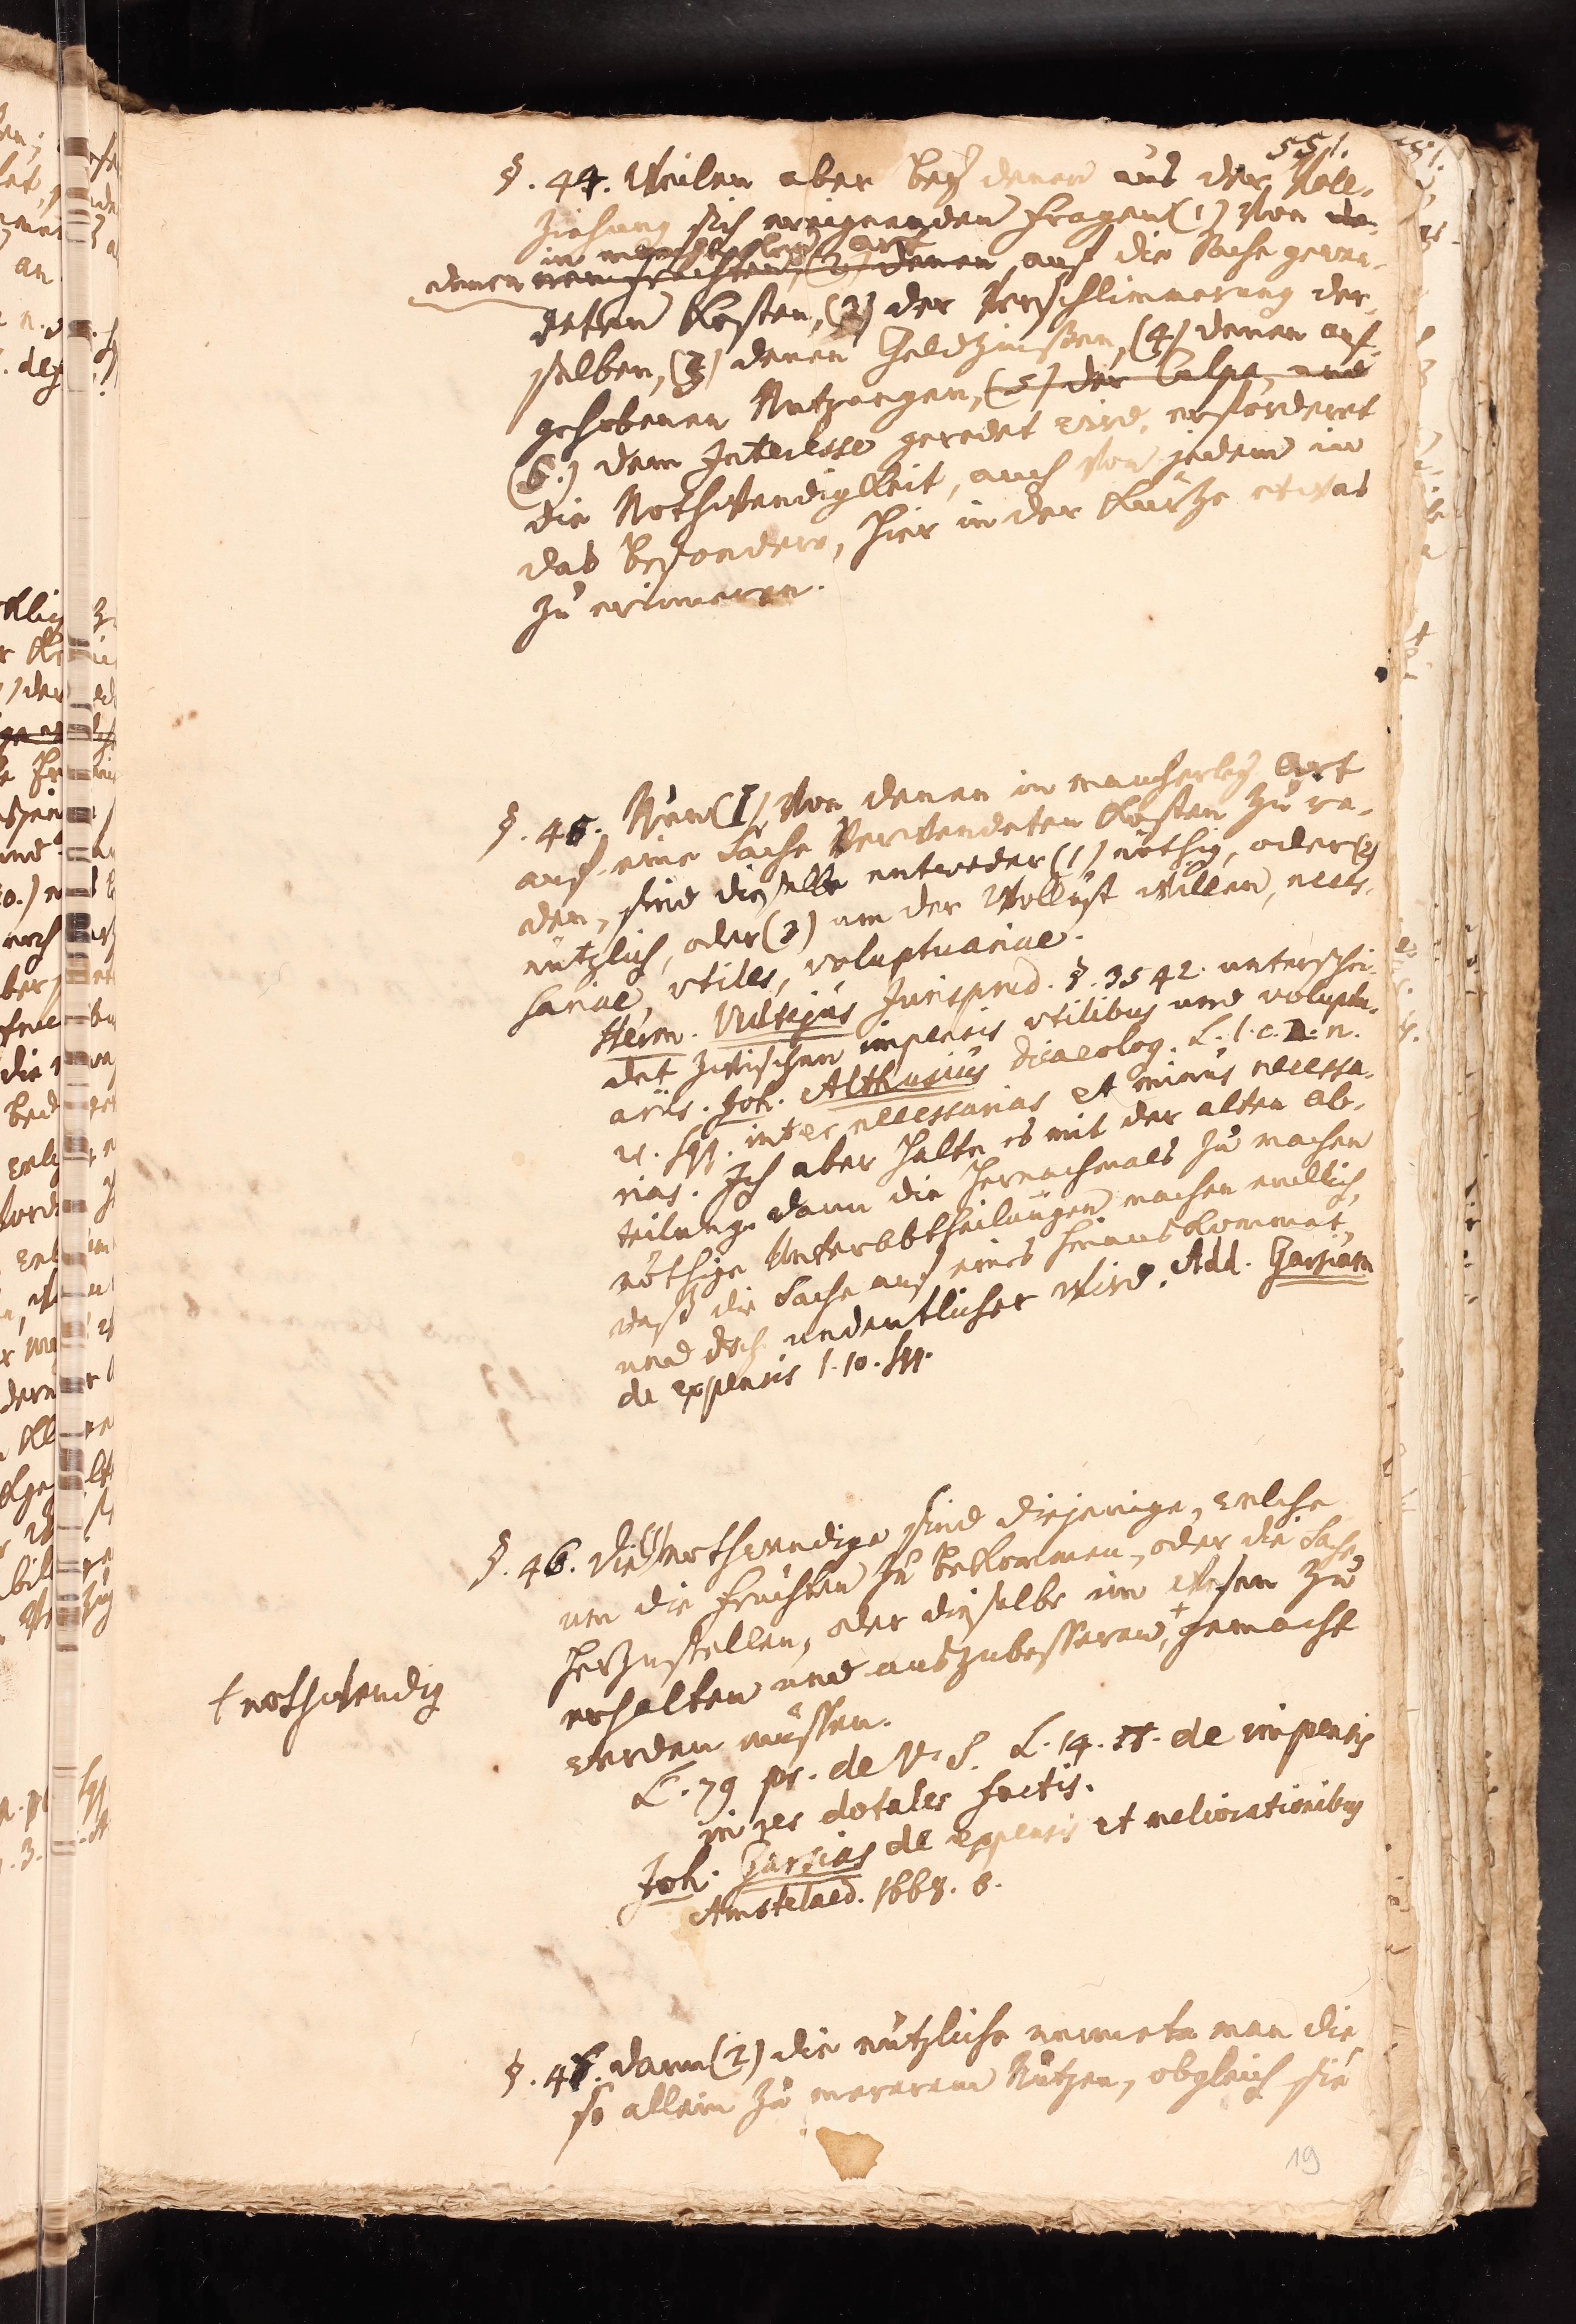 551.
§. 44. Weilen aber bey denen aus der Voll-
ziehung sich ereignenden Fragen (1) Von de-
in mancherley Art
denen nen Früchten, (2) denen auf die Sache gewen-
deten Kosten, (2) der Verschlimmerung der-
selben, (3) denen Geldzinßen, (4) denen auf-
gehobenen Nutzungen, (5) der Culpa, und
(6.) dem Interesse geredet wird, erforderet
die Nothwendigkeit, auch Von jedem in
das besondere, hier in der Kürtze etwas
zu erinneren.
§. 45. Nun (I) Von denen in mancherley Art
auf eine Sache Verwendeten Kosten zu re-
den, sind dieselbe entweder (1) nöthig, oder (2)
nützlich, oder (3) um der Wollust willen, neces-
sariae, utiles, voluptuariae.
Herm. Vultejus Jurisprud. §. 3542. unterschei-
det zwischen impensis utilibus und voluptu-
ariis. Joh. Althusius Dicaeolog. L. 1. c. n.
sqq. inter necessarias et minus necessa-
rias. Ich aber halte es mit der alten ab-
teilung. Dann die hernachmals zu machen
nöthige Unterabtheilungen machen endlich,
daß die Sache auf eines hinaus kommet,
und doch undeutlicher wird. Add. Garsiam
de expensis 1. 10. sqq.
§. 46. Die (1) nothwendige sind diejenige, welche
um die Früchten zu bekommen, oder die Sache
herzustellen, oder dieselbe im Wesen zu
erhalten und auszubesseren, + gemacht
† nothwendig
werden müssen.
L. 79 pr. de V. S. L. 14. ff. de impensis
in res dotales factis.
Joh. Garsias de expensis et meliorationibus
Amstelaed. 1668. 8.
§. 47. Dann (2) die nützliche nennete man die
so allein zu mererem Nutzen, obgleich sie
19